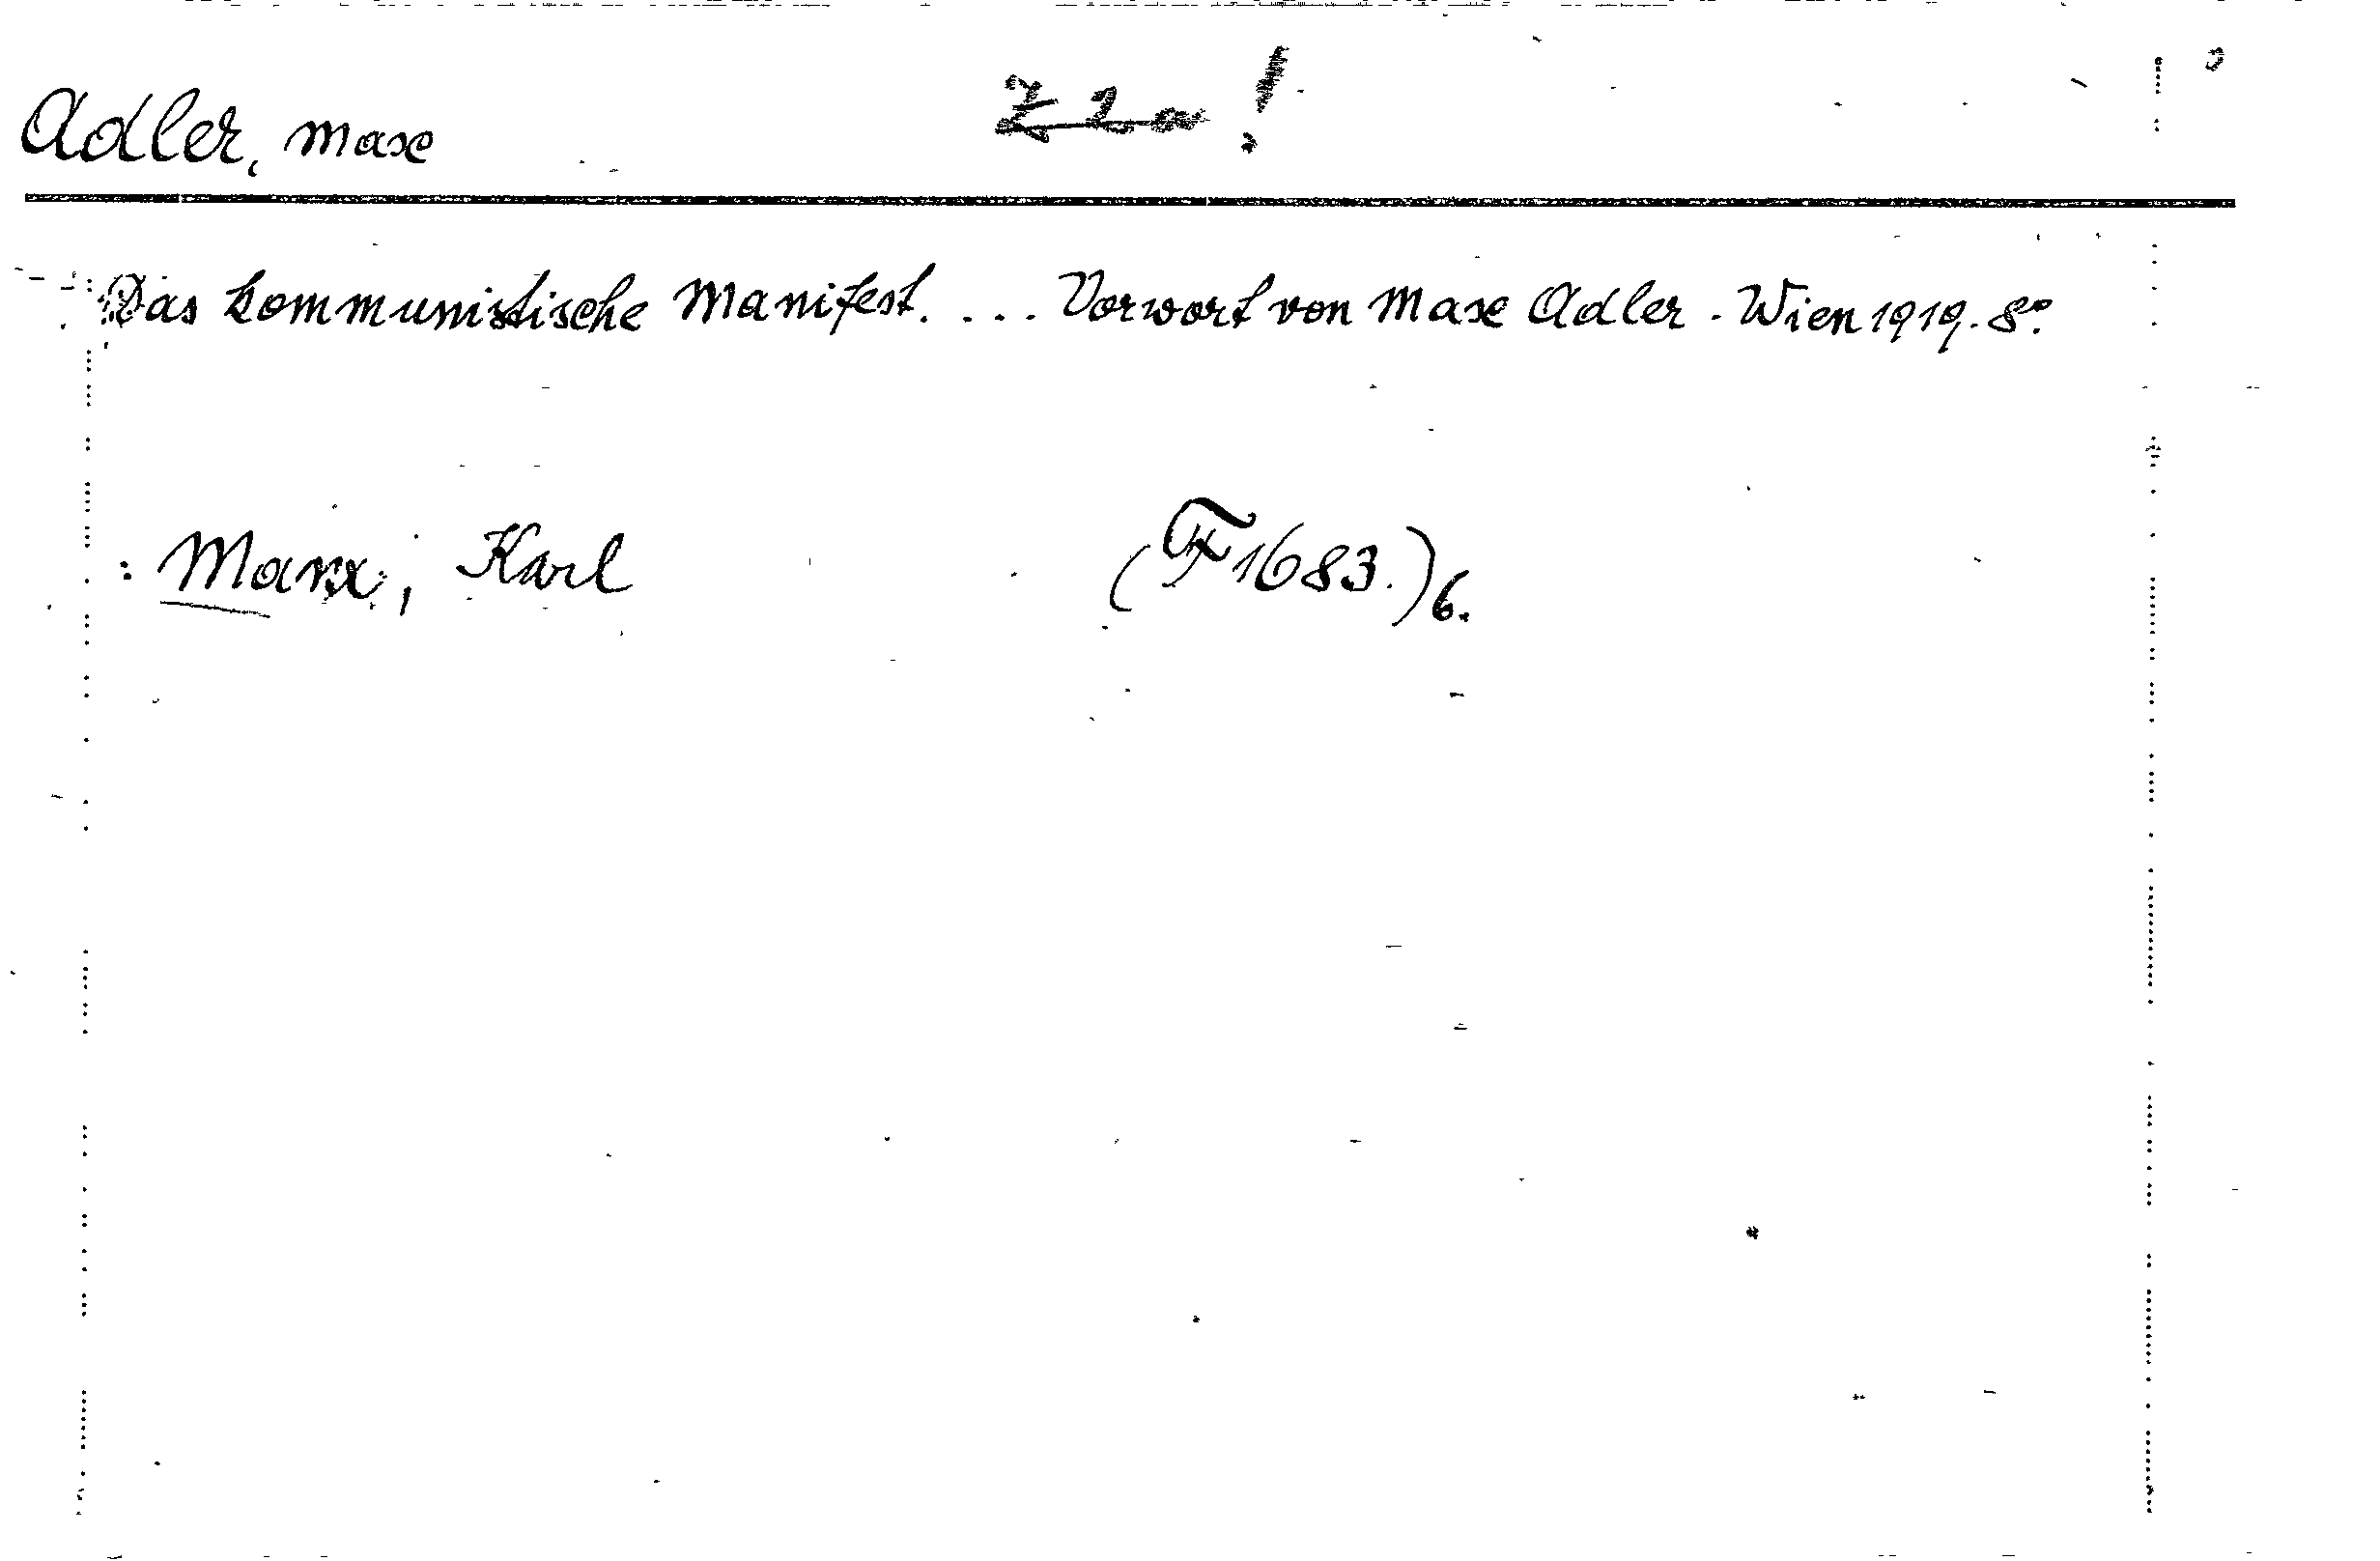 Adler, Max Z 2a!
Das kommunistische Manifest. ... Vorwort von Max Adler. Wien 1919. 8°.
: Marx, Karl (F 1683.) 6.